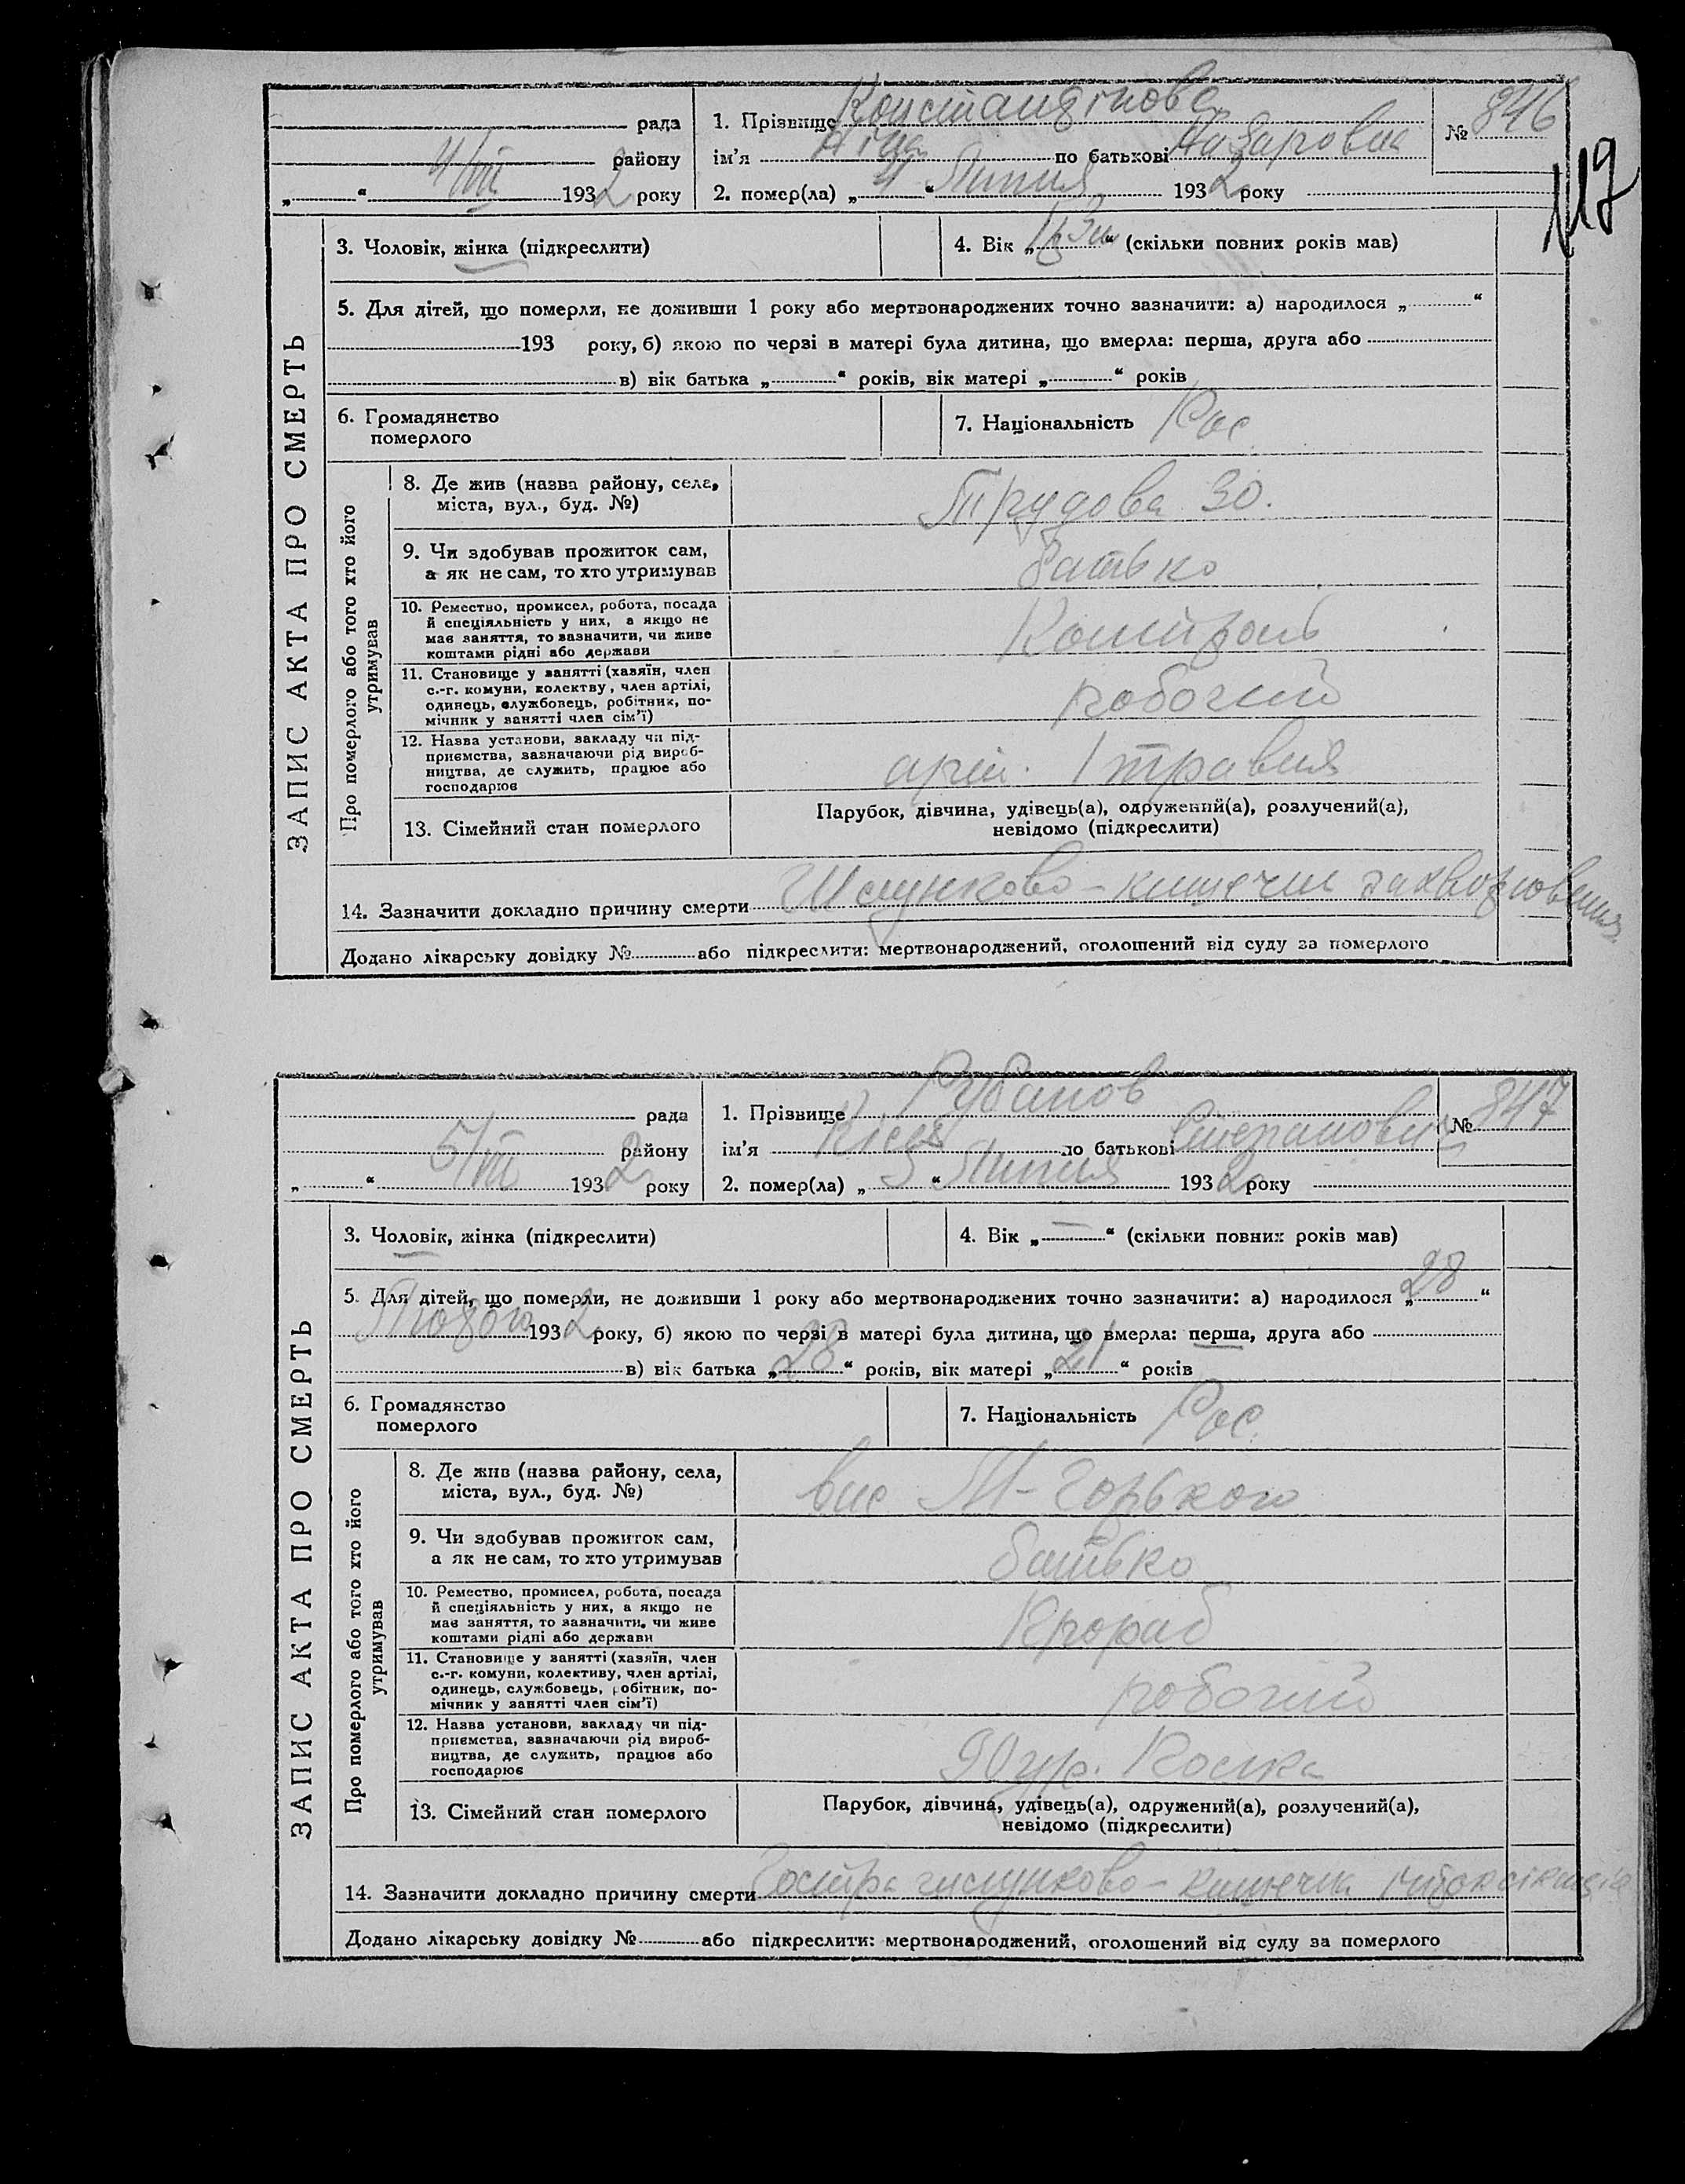 Константінова
рада 1. Прізвище № 846
ім’я по батькові Назаровна
4/VII району
117
„ “ 1932 року 2. помер(ла) „4“ Липня 1932 року
ЗАПИС АКТА ПРО СМЕРТЬ
3. Чоловік, жінка (підкреслити) 4. Вік „ “ (скільки повних років мав)
5. Для дітей, що померли, не доживши 1 року або мертвонароджених точно зазначити: а) народилося „ “
193 року, б) якою по черзі в матері була дитина, що вмерла: перша, друга або
в) вік батька „ “ років, вік матері „ “ років
6. Громадянство
померлого
7. Національність Рос.
Про померлого або того хто його
утримував
8. Де жив (назва району, села,
міста, вул., буд. №)
Трудова 30.
9. Чи здобував прожиток сам,
а як не сам, то хто утримував
батько
10. Ремество, промисел, робота, посада
й спеціяльність у них, а якщо не
має заняття, то зазначити, чи живе
коштами рідні або держави
11. Становище у занятті (хазяїн, член
с.-г. комуни, колектву, член артілі,
одинець, службовець, робітник, по-
мічник у занятті член сім’ї)
робочий
12. Назва установи, закладу чи під-
приємства, зазначаючи рід вироб-
ництва, де служить, працює або
господарює
1 травня
13. Сімейний стан померлого
Парубок, дівчина, удівець(а), одружений(а), розлучений(а),
невідомо (підкреслити)
14. Зазначити докладно причину смерти Шлунково-кишечне захворювання
Додано лікарську довідку № або підкреслити: мертвонароджений, оголошений від суду за померлого
Рубанов
рада 1. Прізвище № 847
5/VII району ім’я по батькові Степанович
„ “ 1932 року 2. помер(ла) „5“ Липня 1932 року
ЗАПИС АКТА ПРО СМЕРТЬ
3. Чоловік, жінка (підкреслити) 4. Вік „—“ (скільки повних років мав)
5. Для дітей, що померли, не доживши 1 року або мертвонароджених точно зазначити: а) народилося „28“
1932 року, б) якою по черзі в матері була дитина, що вмерла: перша, друга або
в) вік батька „28“ років, вік матері „21“ років
6. Громадянство
померлого
7. Національність Рос.
Про померлого або того хто його
утримував
8. Де жив (назва району, села,
міста, вул., буд. №)
вис М-Горького
9. Чи здобував прожиток сам,
а як не сам, то хто утримував
батько
10. Ремество, промисел, робота, посада
й спеціяльність у них, а якщо не
має заняття, то зазначити, чи живе
коштами рідні або держави
Прораб
11. Становище у занятті (хазяїн, член
с.-г. комуни, колективу, член артілі,
одинець, службовець, робітник, по-
мічник у занятті член сім’ї)
робочий
12. Назва установи, закладу чи під-
приємства, зазначаючи рід вироб-
ництва, де служить, працює або
господарює
13. Сімейний стан померлого
Парубок, дівчина, удівець(а), одружений(а), розлучений(а),
невідомо (підкреслити)
14. Зазначити докладно причину смерти Гостра шлунково-кишечна інтоксікація
Додано лікарську довідку № або підкреслити: мертвонароджений, оголошений від суду за померлого